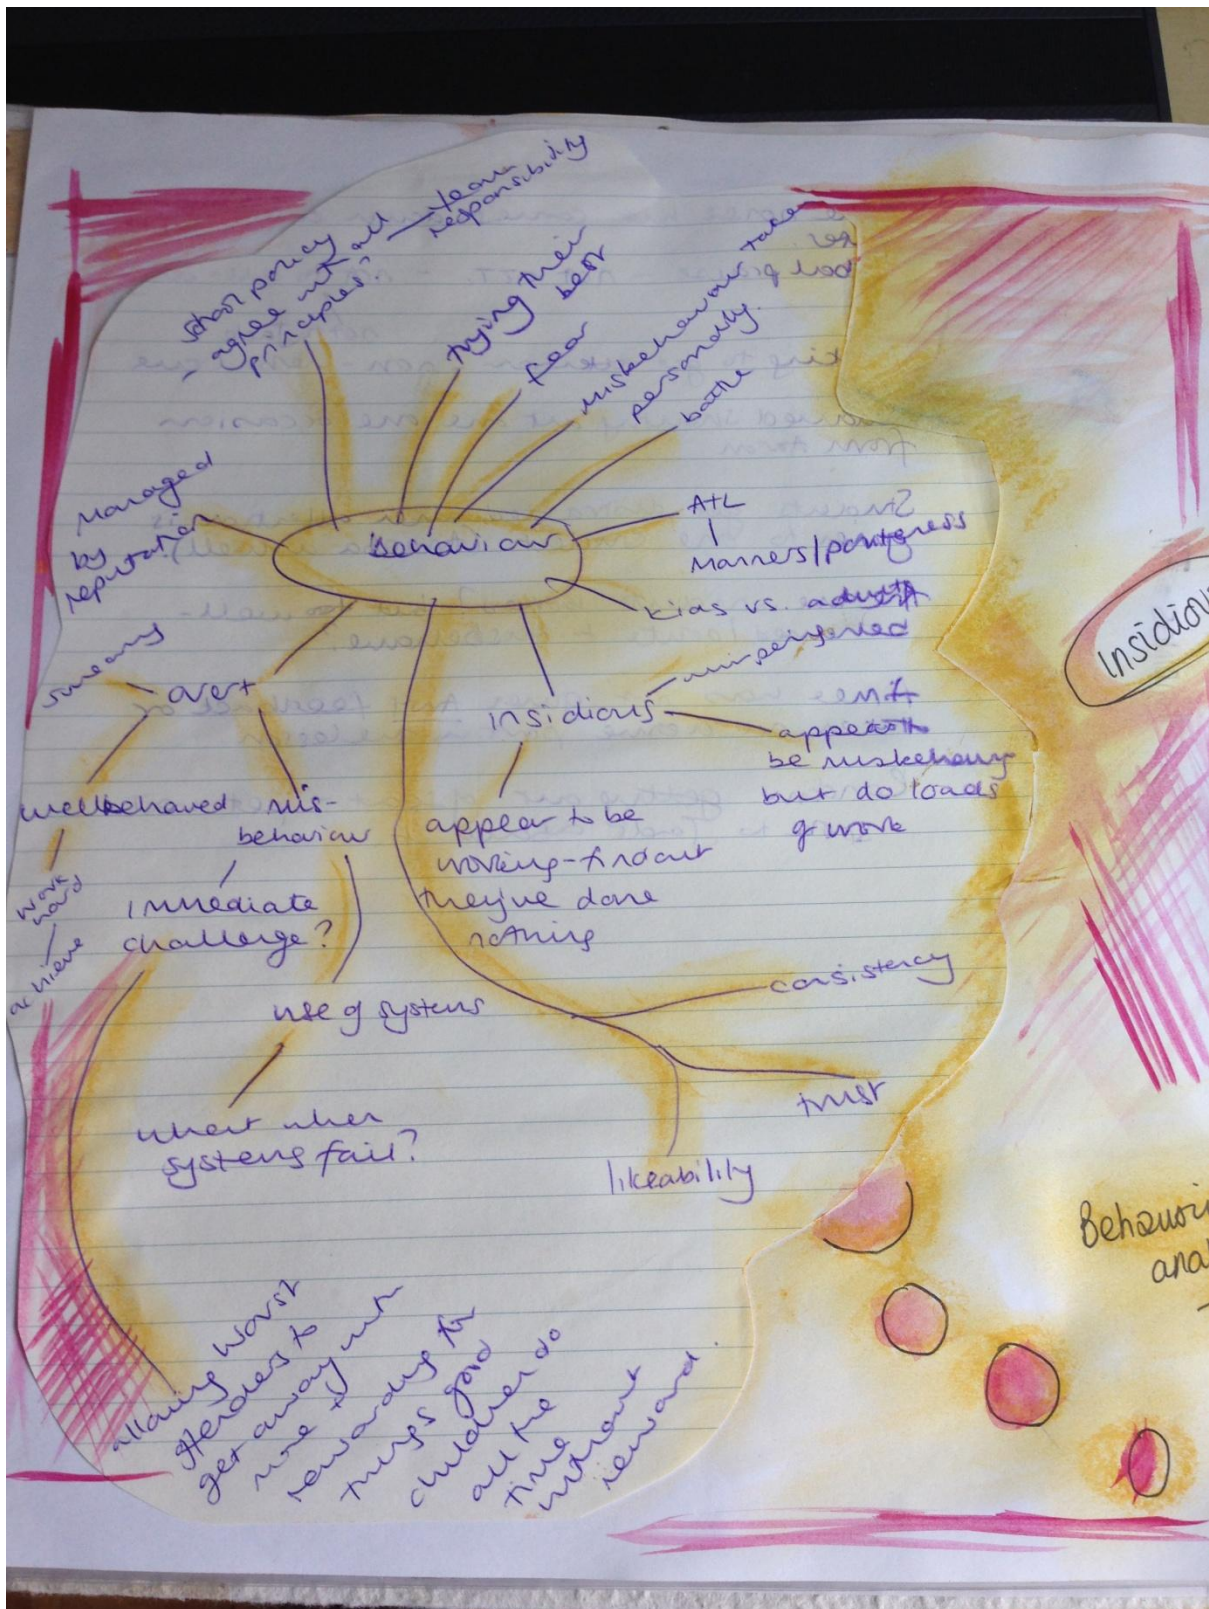 school policy
- agree with all
principles?
team
responsibility
trying their
best
fear
misbehaviour taken
personally.
battle
Managed
by
reputation
Behaviour
AtL
Manners/
kids vs.
overt
insidious
well behaved
work
hard
achieve
mis-
behaviour
immediate
challenge?
use of systems
what when
systems fail?
appear to be
working - find out
they've done
nothing
appear to
be misbehaving
but do loads
of work
consistency
trust
likeability
allowing worst
offenders to
get away with
more +
rewarding for
things good
children do
all the
time
without
reward.
Insidiou
Behaviou
anal